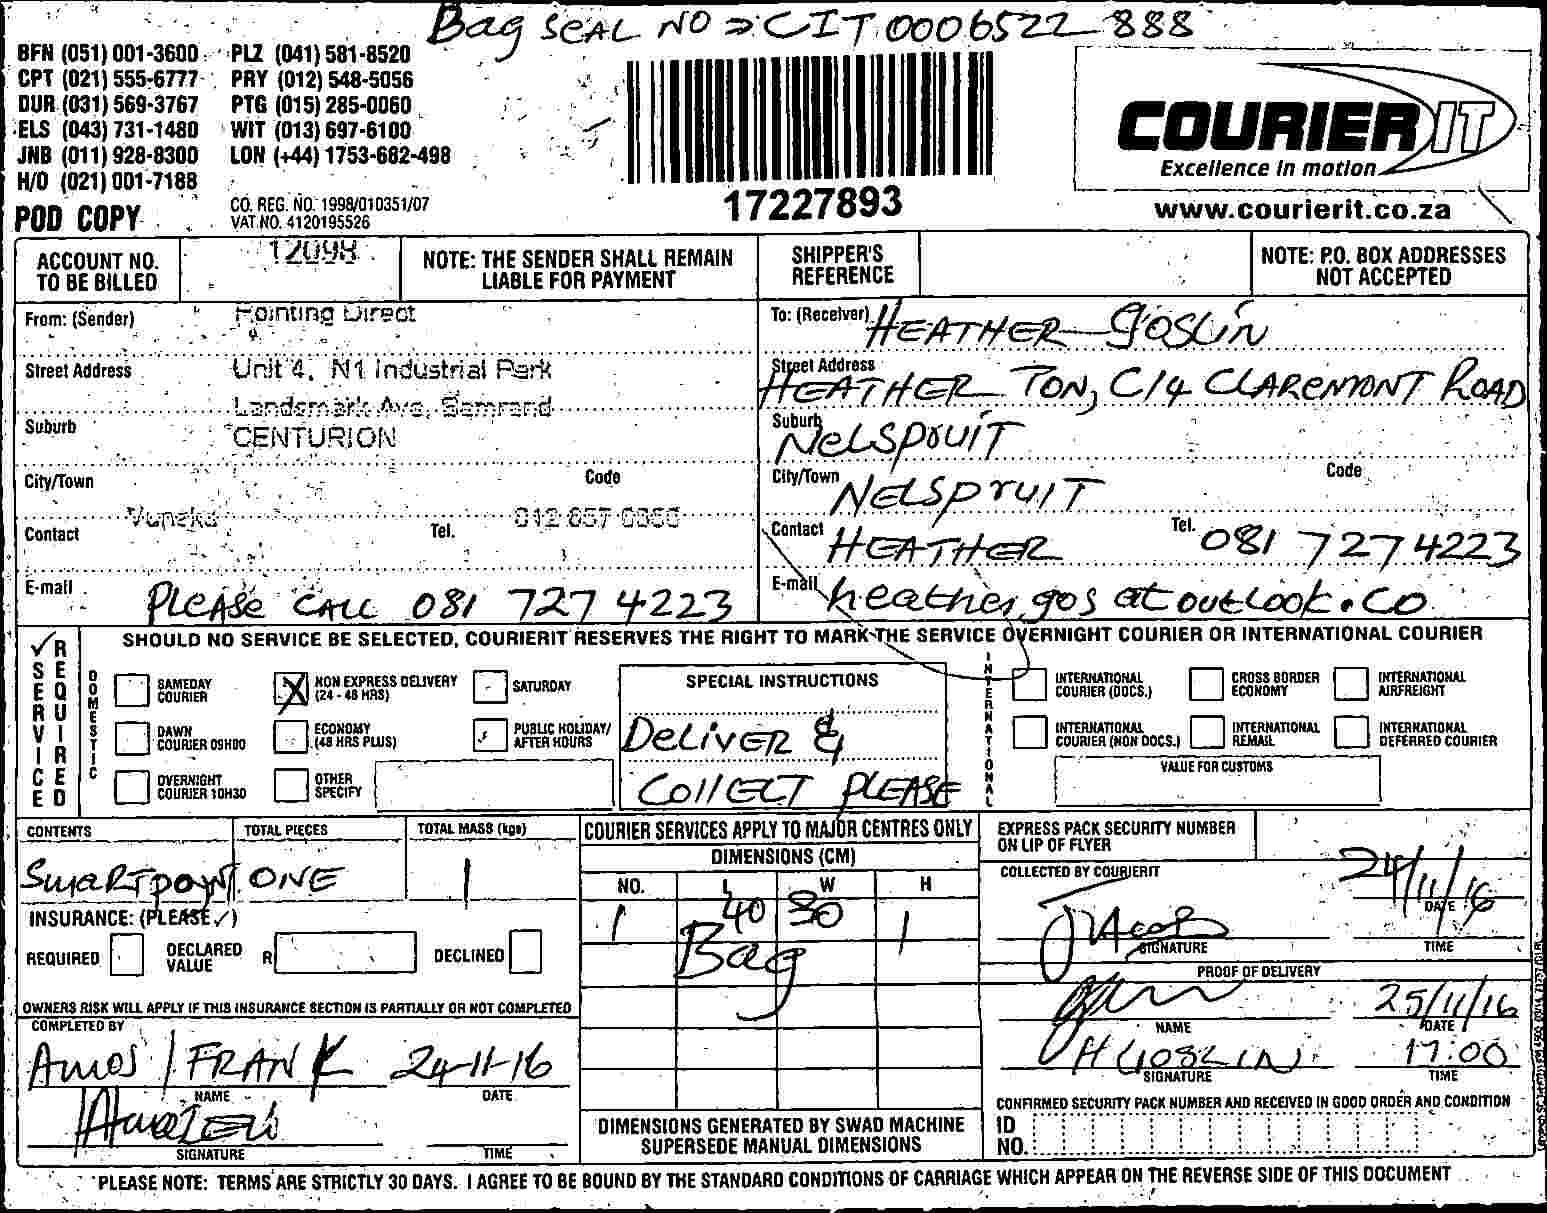 Bag SEAL NO => CIT 0006522 888
BFN (051) 001-3600 PLZ (041) 581-8520
CPT (021) 555-6777 PRY (012) 548-5056
DUR (031) 569-3767 PTG (015) 285-0060
ELS (043) 731-1480 WIT (013) 697-6100
JNB (011) 928-8300 LON (+44) 1753-682-498
H/O (021) 001-7188
CO. REG. NO. 1998/010351/07
VAT NO. 4120195526
POD COPY
17227893
COURIER IT
Excellence in motion
www.courierit.co.za
ACCOUNT NO. TO BE BILLED 12098
NOTE: THE SENDER SHALL REMAIN LIABLE FOR PAYMENT
SHIPPER'S REFERENCE
NOTE: P.O. BOX ADDRESSES NOT ACCEPTED
From: (Sender) Pointing Direct
Street Address Unit 4, N1 Industrial Park
Landsmark Ave, Samrand
Suburb CENTURION
City/Town Code
Contact Tel.
E-mail PLEASE CALL 081 727 4223
To: (Receiver) HEATHER GOSLIN
Street Address HEATHER TON, C/4 CLAREMONT ROAD
Suburb NELSPRUIT
City/Town NELSPRUIT Code
Contact HEATHER Tel. 081 727 4223
E-mail heather gos at outlook.co
SERVICE REQUIRED
SHOULD NO SERVICE BE SELECTED, COURIERIT RESERVES THE RIGHT TO MARK THE SERVICE OVERNIGHT COURIER OR INTERNATIONAL COURIER
DOMESTIC
SAMEDAY COURIER
NON EXPRESS DELIVERY (24 - 48 HRS) X
SATURDAY
DAWN COURIER 09H00
ECONOMY (48 HRS PLUS)
PUBLIC HOLIDAY/ AFTER HOURS
OVERNIGHT COURIER 10H30
OTHER SPECIFY
SPECIAL INSTRUCTIONS
DELIVER &
COLLECT PLEASE
INTERNATIONAL
INTERNATIONAL COURIER (DOCS.)
CROSS BORDER ECONOMY
INTERNATIONAL AIRFREIGHT
INTERNATIONAL COURIER (NON DOCS.)
INTERNATIONAL REMAIL
INTERNATIONAL DEFERRED COURIER
VALUE FOR CUSTOMS
CONTENTS TOTAL PIECES TOTAL MASS (kgs)
SMARTPOYNT ONE 1
INSURANCE: (PLEASE ✓)
REQUIRED DECLARED VALUE R DECLINED
OWNERS RISK WILL APPLY IF THIS INSURANCE SECTION IS PARTIALLY OR NOT COMPLETED
COMPLETED BY
Amos / FRANK 24-11-16
NAME DATE
SIGNATURE TIME
COURIER SERVICES APPLY TO MAJOR CENTRES ONLY
DIMENSIONS (CM)
NO. L W H
1 40 30 1
Bag
DIMENSIONS GENERATED BY SWAD MACHINE SUPERSEDE MANUAL DIMENSIONS
EXPRESS PACK SECURITY NUMBER ON LIP OF FLYER
COLLECTED BY COURIERIT
JACOB 24/11/16
SIGNATURE DATE
TIME
PROOF OF DELIVERY
25/11/16
NAME DATE
H GOSLIN 17:00
SIGNATURE TIME
CONFIRMED SECURITY PACK NUMBER AND RECEIVED IN GOOD ORDER AND CONDITION
ID NO.
PLEASE NOTE: TERMS ARE STRICTLY 30 DAYS. I AGREE TO BE BOUND BY THE STANDARD CONDITIONS OF CARRIAGE WHICH APPEAR ON THE REVERSE SIDE OF THIS DOCUMENT